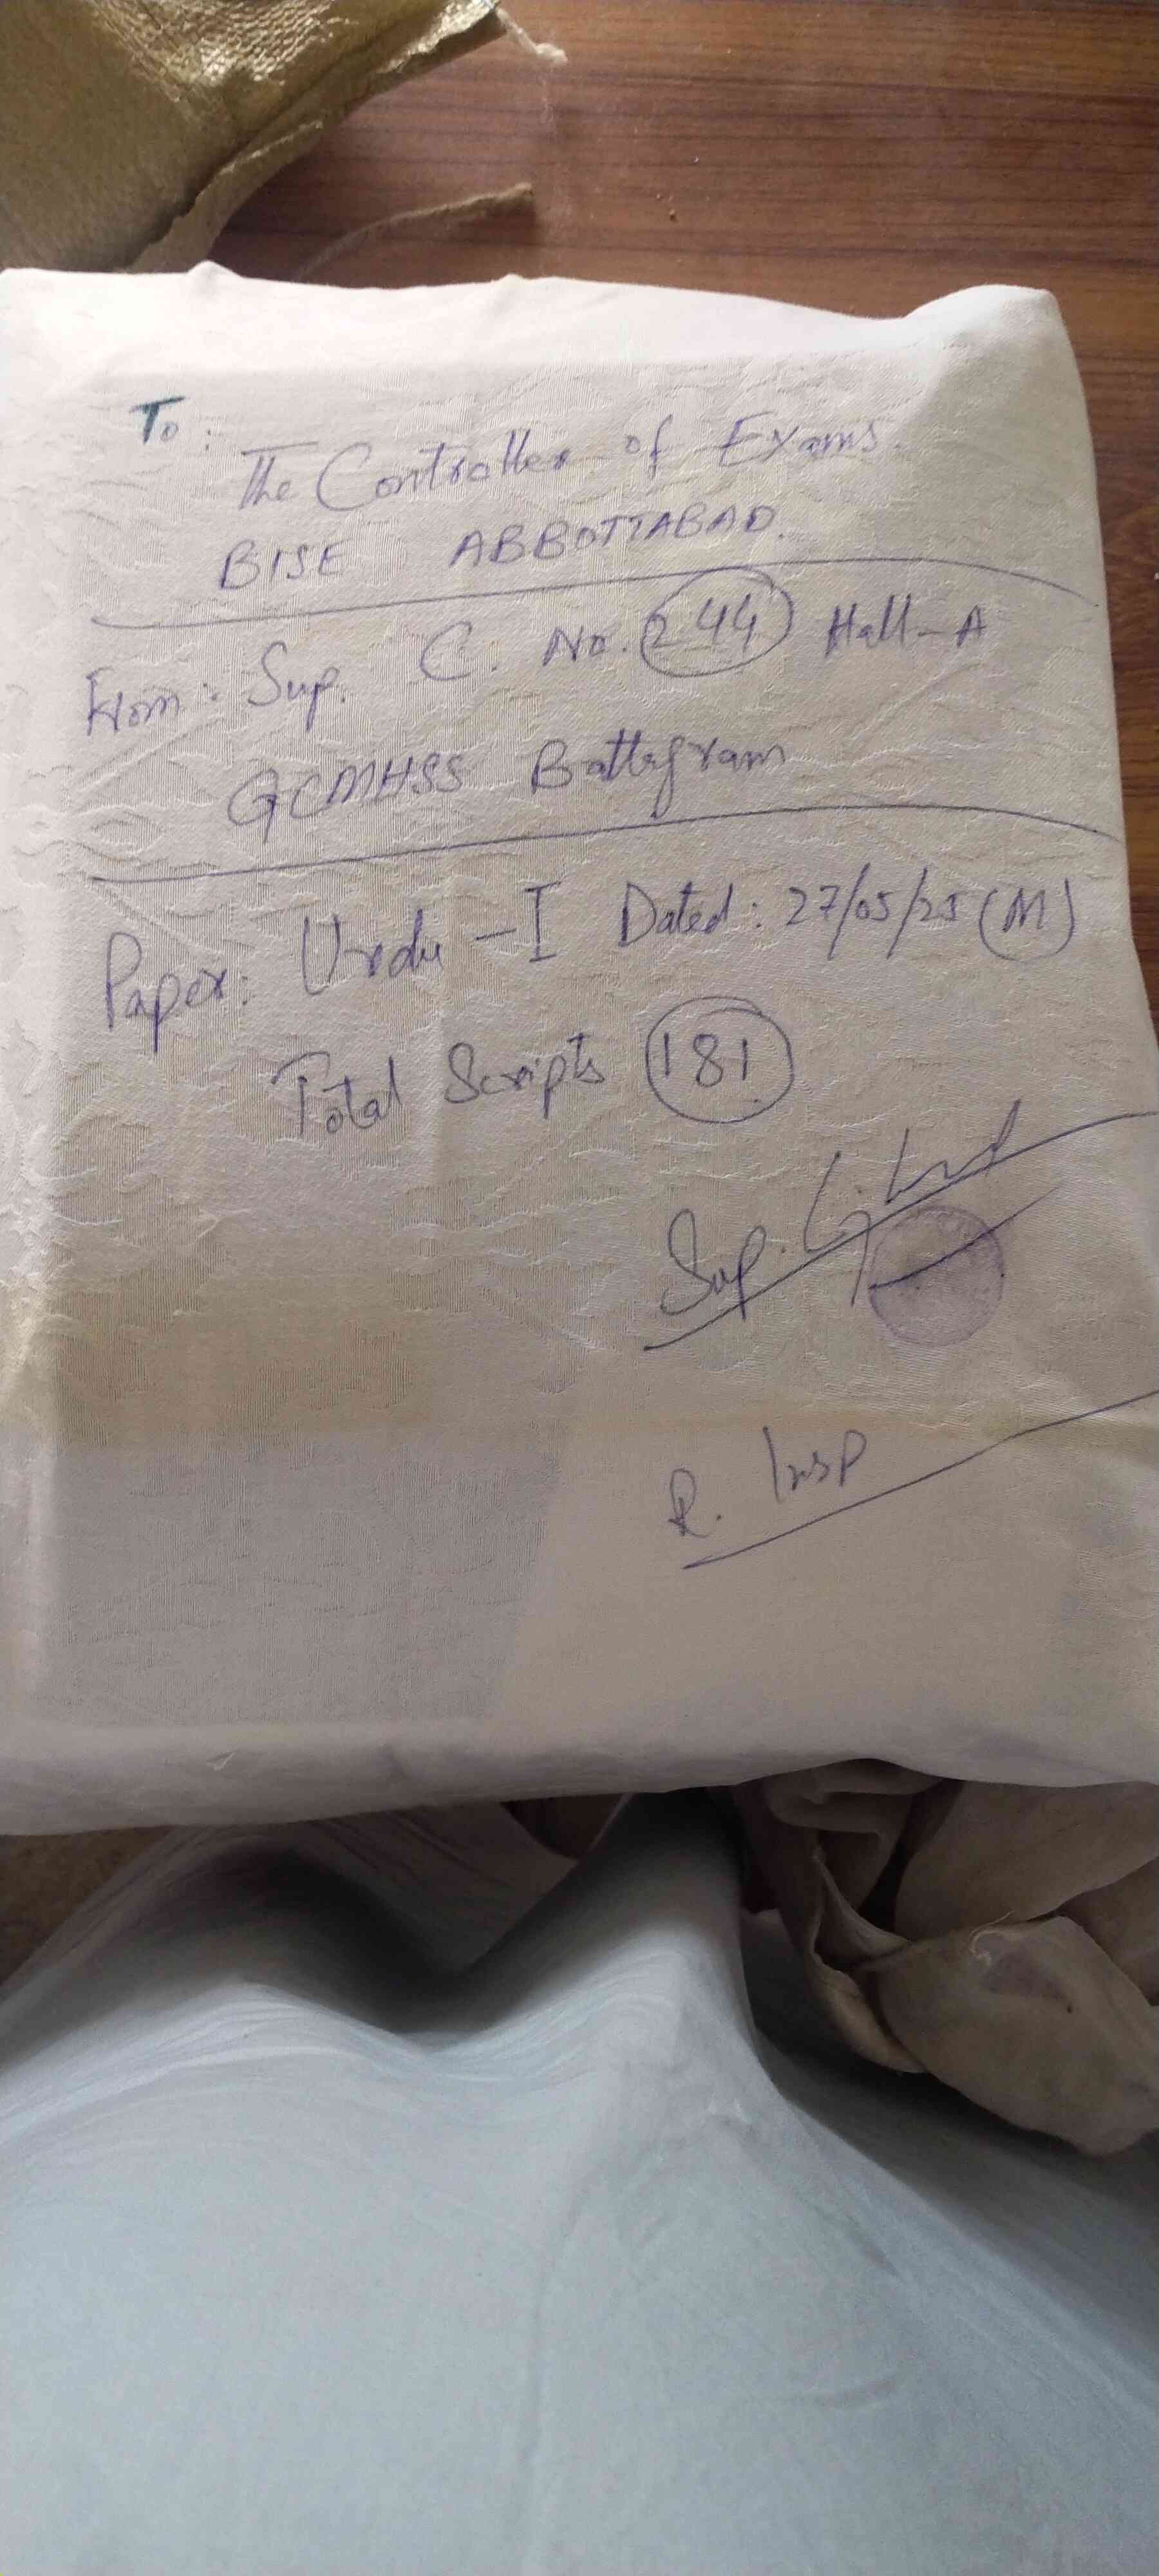 To:
The Controller of Exams.
BISE ABBOTTABAD.
From: Sup. C. No. 244 Hall-A
GCMHSS Battagram
Paper: Urdu-I Dated: 27/05/25 (M)
Total Scripts 181
Sup.
R. Insp